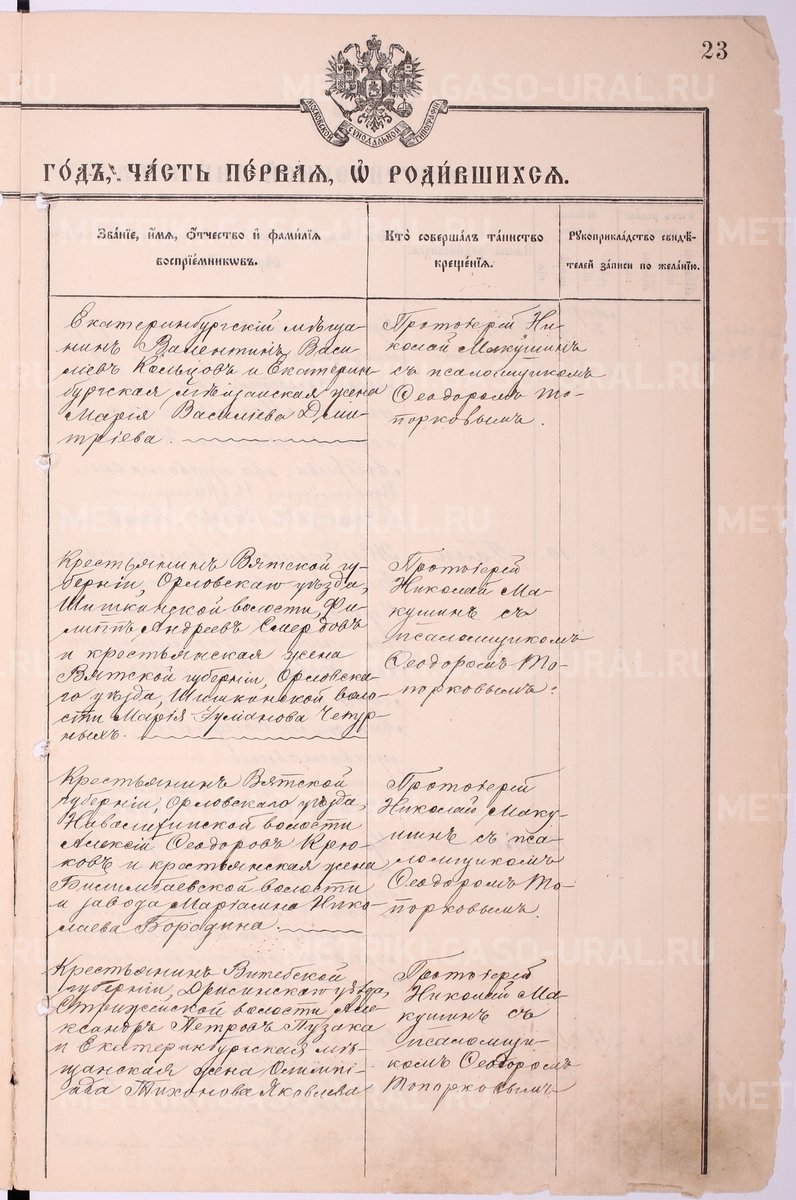 23
МОСКОВСКОЙ СѴНОДАЛЬНОЙ ТИПОГРАФІИ
ГО́ДЪ, ЧА́СТЬ ПЕ́РВАЯ, Ѡ҆ РОДИ́ВШИХСЯ.
Зва́нїе, и҆́мя, ѻ҆́тчество и҆ фами́лїя
воспрїе́мникѡвъ.
Кто̀ соверша́лъ та́инство
креще́нїя.
Рꙋкоприкла́дство свидѣ́-
телей за́писи по жела́нїю.
Екатеринбургскій мѣща-
нинъ Валентинъ Васи-
льевъ Кольцовъ и Екатерин-
бургская мѣщанская жена
Марія Василіева Дми-
тріева.
Протоіерей Ни-
колай Макушинъ
съ псаломщикомъ
Ѳеодоромъ То-
порковымъ.
Крестьянинъ Вятской гу-
берніи, Орловскаго уѣзда,
волости, Фи-
липпъ Андреевъ Смердовъ
и крестьянская жена
Вятской губерніи, Орловска-
го уѣзда, воло-
сти Марія
Протоіерей
Николай Ма-
кушинъ съ
псаломщикомъ
Ѳеодоромъ То-
порковымъ.
Крестьянинъ Вятской
губерніи, Орловскаго уѣзда,
волости
Алексій Ѳеодоровъ Крю-
ковъ и крестьянская жена
Билимбаевской волости
и завода Маріамна Нико-
лаева Бородина.
Протоіерей
Николай Маку-
шинъ съ пса-
ломщикомъ
Ѳеодоромъ То-
порковымъ.
Крестьянинъ Витебской
губерніи, Дрисинскаго уѣзда,
волости Але-
ксандръ Петровъ Пузака
и Екатеринбургская мѣ-
щанская жена Олимпі-
ада Тихонова Яковлева
Протоіерей
Николай Ма-
кушинъ съ
псаломщи-
комъ Ѳеодоромъ
Топорковымъ
METRIKI.GASO-URAL.RU